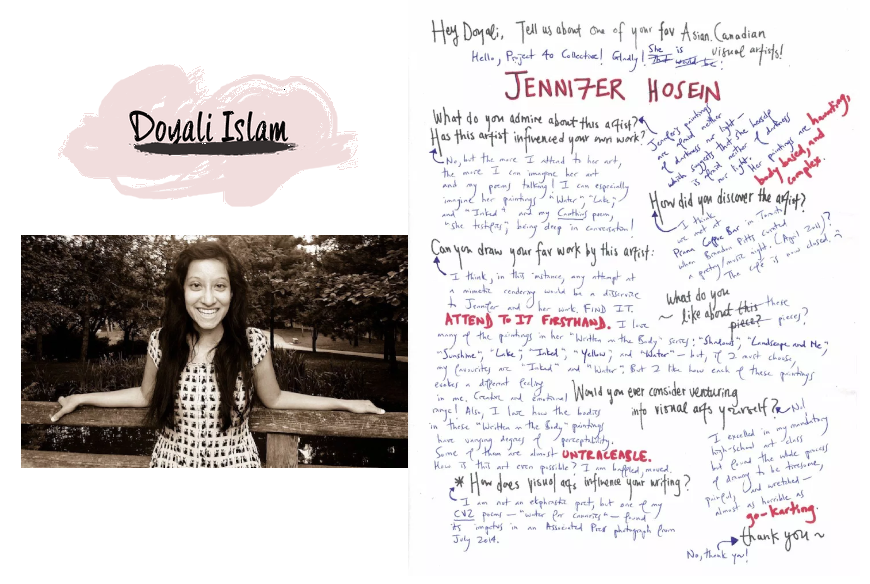 Doyali Islam
Hey Doyali, Tell us about one of your fav Asian Canadian
visual artists!
Hello, Project 40 Collective! Gladly! She is
that would be:
JENNIFER HOSEIN
What do you admire about this artist?
Jennifer's paintings
are afraid neither
of darkness nor light —
which suggests that she herself
is afraid neither of darkness
nor light.
Her paintings are haunting,
body based, and
complex.
Has this artist influenced your own work?
No, but the more I attend to her art,
the more I can imagine her art
and my poems talking! I can especially
imagine her paintings "Water", "Lake",
and "Inked", and my Canthius poem,
being deep in conversation!
How did you discover the artist?
I think
we met at
Coffee Bar in Toronto
when Brandon Pitts curated
a poetry/music night. (April 2011)?
The café is now closed.
Can you draw your fav work by this artist:
I think, in this instance, any attempt at
a mimetic rendering would be a disservice
to Jennifer and her work. FIND IT.
ATTEND TO IT FIRSTHAND. I love
many of the paintings in her "Written on the Body" series: "Shadows", "Landscape and Me",
"Sunshine", "Lake", "Inked", "Yellow", and "Water" — but, if I must choose,
my favourites are "Inked" and "Water". But I like how each of these paintings
evokes a different feeling
in me. Creative and emotional
range! Also, I love how the bodies
in these "Written on the Body" paintings
have varying degrees of perceptability.
Some of them are almost UNTRACEABLE.
How is this art even possible? I am baffled, moved.
What do you
like about this these
piece? pieces?
Would you ever consider venturing
into visual arts yourself?
No!
I excelled in my mandatory
high-school art class
but found the whole process
of drawing to be tiresome,
painful, and wretched —
almost as horrible as
go-karting.
* How does visual arts influence your writing?
I am not an ekphrastic poet, but one of my
CV2 poems — "water for canaries" — found
its impetus in an Associated Press photograph from
July 2014.
thank you ~
No, thank you!